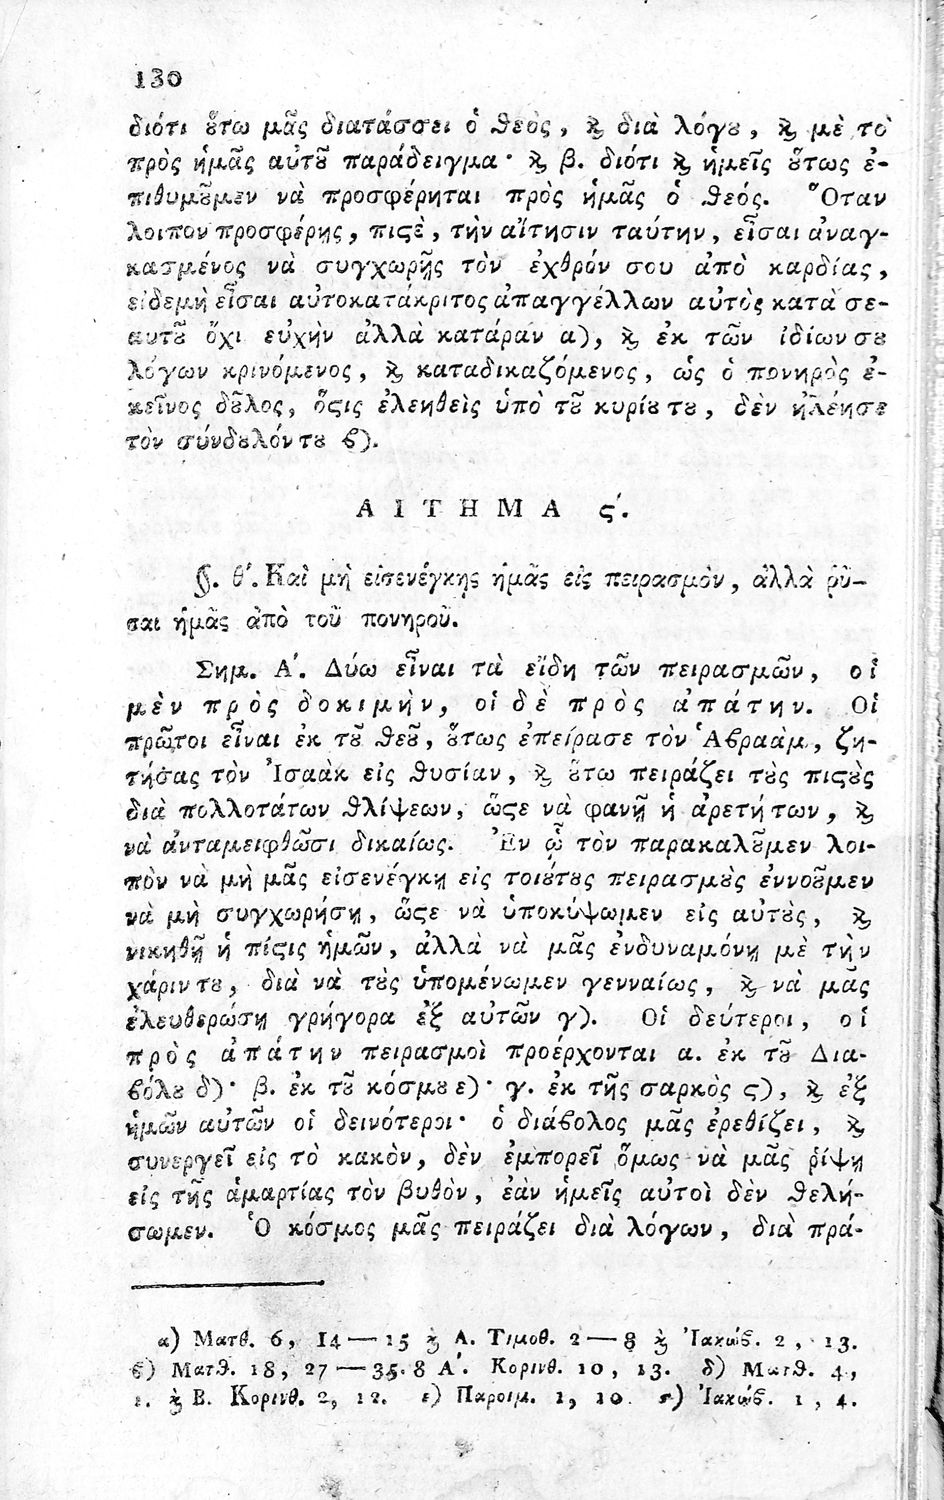 130
διότι ȣ̔́τω μᾶς διατάσσει ὁ ϑεὸς, ϗ διὰ λόγȣ, ϗ μὲ τὸ
πρὸς ἡμᾶς αὐτȣ͂ παράδειγμα· ϗ β. διότι ϗ ἡμεῖς ȣ̔́τως ἐ-
πιθυμȣ͂μεν νὰ προσφέρηται πρὸς ἡμᾶς ὁ ϑεός. Ὅταν
λοιπὸν προσφέρῃς, πιϛὲ, τὴν αἴτησιν ταύτην, εἶσαι ἀναγ-
κασμένος νὰ συγχωρῇς τὸν ἐχθρόν σου ἀπὸ καρδίας,
εἰδεμὴ εἶσαι αὐτοκατάκριτος ἀπαγγέλλων αὐτὸς κατὰ σε-
αυτȣ͂ ὄχι εὐχὴν ἀλλὰ κατάραν α), ϗ ἐκ τῶν ἰδίων σȣ
λόγων κρινόμενος, ϗ καταδικαζόμενος, ὡς ὁ πονηρὸς ἐ-
κεῖνος δȣ͂λος, ὅϛις ἐλεηθεὶς ὑπὸ τȣ͂ κυρίȣ τȣ, δὲν ἠλέησε
τὸν σύνδȣλόν τȣ ϐ).
ΑΙΤΗΜΑ ϛʹ.
§. θʹ. Καὶ μὴ εἰσενέγκῃς ἡμᾶς εἰς πειρασμὸν, ἀλλὰ ῥῦ-
σαι ἡμᾶς ἀπὸ τοῦ πονηροῦ.
Σημ. Αʹ. Δύω εἶναι τὰ εἴδη τῶν πειρασμῶν, οἱ
μὲν πρὸς δοκιμὴν, οἱ δὲ πρὸς ἀπάτην. Οἱ
πρῶτοι εἶναι ἐκ τȣ͂ ϑεȣ͂, ȣ̔́τως ἐπείρασε τὸν Ἁϐραὰμ, ζη-
τήσας τὸν Ἰσαὰκ εἰς ϑυσίαν, ϗ ȣ̔́τω πειράζει τȣ̀ς πιϛȣ̀ς
διὰ πολλοτάτων ϑλίψεων, ὥϛε νὰ φανῇ ἡ ἀρετή των, ϗ
νὰ ἀνταμειφθῶσι δικαίως. Ἐν ᾧ τὸν παρακαλȣ͂μεν λοι-
πὸν νὰ μὴ μᾶς εἰσενέγκῃ εἰς τοιȣ́τȣς πειρασμȣ̀ς ἐννοȣ͂μεν
νὰ μὴ συγχωρήσῃ, ὥϛε νὰ ὑποκύψωμεν εἰς αὐτȣ̀ς, ϗ
νικηθῇ ἡ πίϛις ἡμῶν, ἀλλὰ νὰ μᾶς ἐνδυναμόνῃ μὲ τὴν
χάριν τȣ, διὰ νὰ τȣ̀ς ὑπομένωμεν γενναίως, ϗ νὰ μᾶς
ἐλευθερώσῃ γρήγορα ἐξ αὐτῶν γ). Οἱ δεύτεροι, οἱ
πρὸς ἀπάτην πειρασμοὶ προέρχονται α. ἐκ τȣ͂ Δια-
ϐόλȣ δ)· β. ἐκ τȣ͂ κόσμȣ ε)· γ. ἐκ τῆς σαρκὸς ϛ), ϗ ἐξ
ἡμῶν αὐτῶν οἱ δεινότεροι· ὁ διάϐολος μᾶς ἐρεθίζει, ϗ
συνεργεῖ εἰς τὸ κακὸν, δὲν ἐμπορεῖ ὅμως νὰ μᾶς ῥίψῃ
εἰς τῆς ἁμαρτίας τὸν βυθὸν, ἐὰν ἡμεῖς αὐτοὶ δὲν ϑελή-
σωμεν. Ὁ κόσμος μᾶς πειράζει διὰ λόγων, διὰ πρά-
α) Ματθ. 6, 14—15 ϗ Α. Τιμοθ. 2—8 ϗ Ἰακώϐ. 2, 13.
ϐ) Ματϑ. 18, 27—35. 8 Αʹ. Κορινθ. 10, 13. δ) Ματϑ. 4,
1. ϗ Β. Κορινθ. 2, 12. ε) Παροιμ. 1, 10. ϛ) Ἰακώϐ. 1, 4.